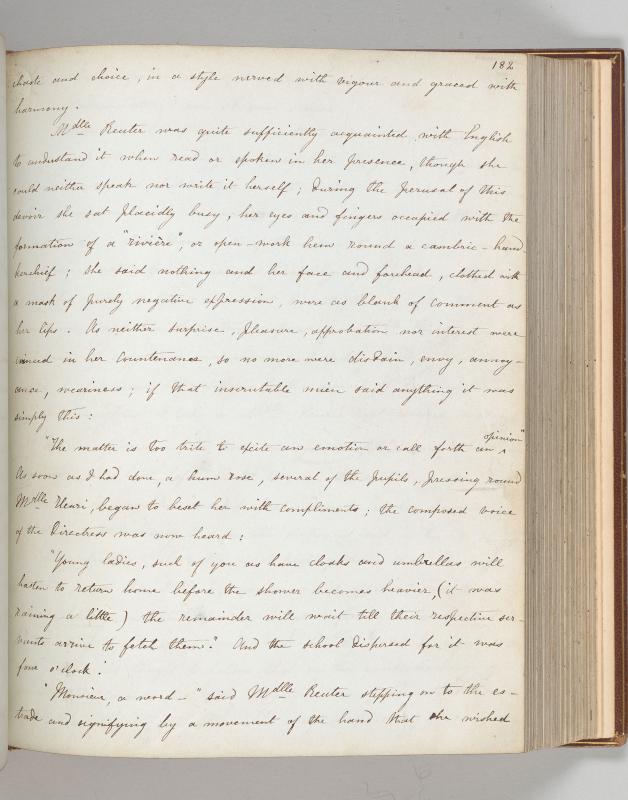 182
chaste and choice, in a style nerved with vigour and graced with
harmony.
Mdlle Reuter was quite sufficiently acquainted with English
to understand it when read or spoken in her presence, though she
could neither speak nor write it herself; During the perusal of this
devoir she sat placidly busy, her eyes and fingers occupied with the
formation of a "rivière", or open-work hem round a cambric-hand-
kerchief; she said nothing and her face and forehead, clothed with
a mask of purely negative expression, were as blank of comment as
her lips. As neither surprise, pleasure, approbation nor interest were
evinced in her countenance, so no more were disdain, envy, annoy-
ance, weariness; if that inscrutable mien said anything it was
simply this:
"The matter is too trite to excite an emotion or call forth an opinion"
As soon as I had done, a hum rose, several of the pupils, pressing round
Mdlle Henri, began to beset her with compliments; the composed voice
of the Directress was now heard:
"Young ladies, such of you as have cloaks and umbrellas will
hasten to return home before the shower becomes heavier, (it was
raining a little) the remainder will wait till their respective ser-
vants arrive to fetch them". And the school dispersed for it was
four o'clock.
"Monsieur, a word—" said Mdlle Reuter stepping on to the es-
trade and signifying by a movement of the hand that she wished